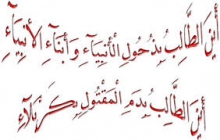 أَيْنَ الطَّالِبُ بِذُحُولِ الْأَنْبِيَآءِ وَ أَبْنَآءِ الْأَنْبِيَآءِ
أَيْنَ الطَّالِبُ بِدَمِ الْمَقْتُولِ بِكَرْبَلَآءِ